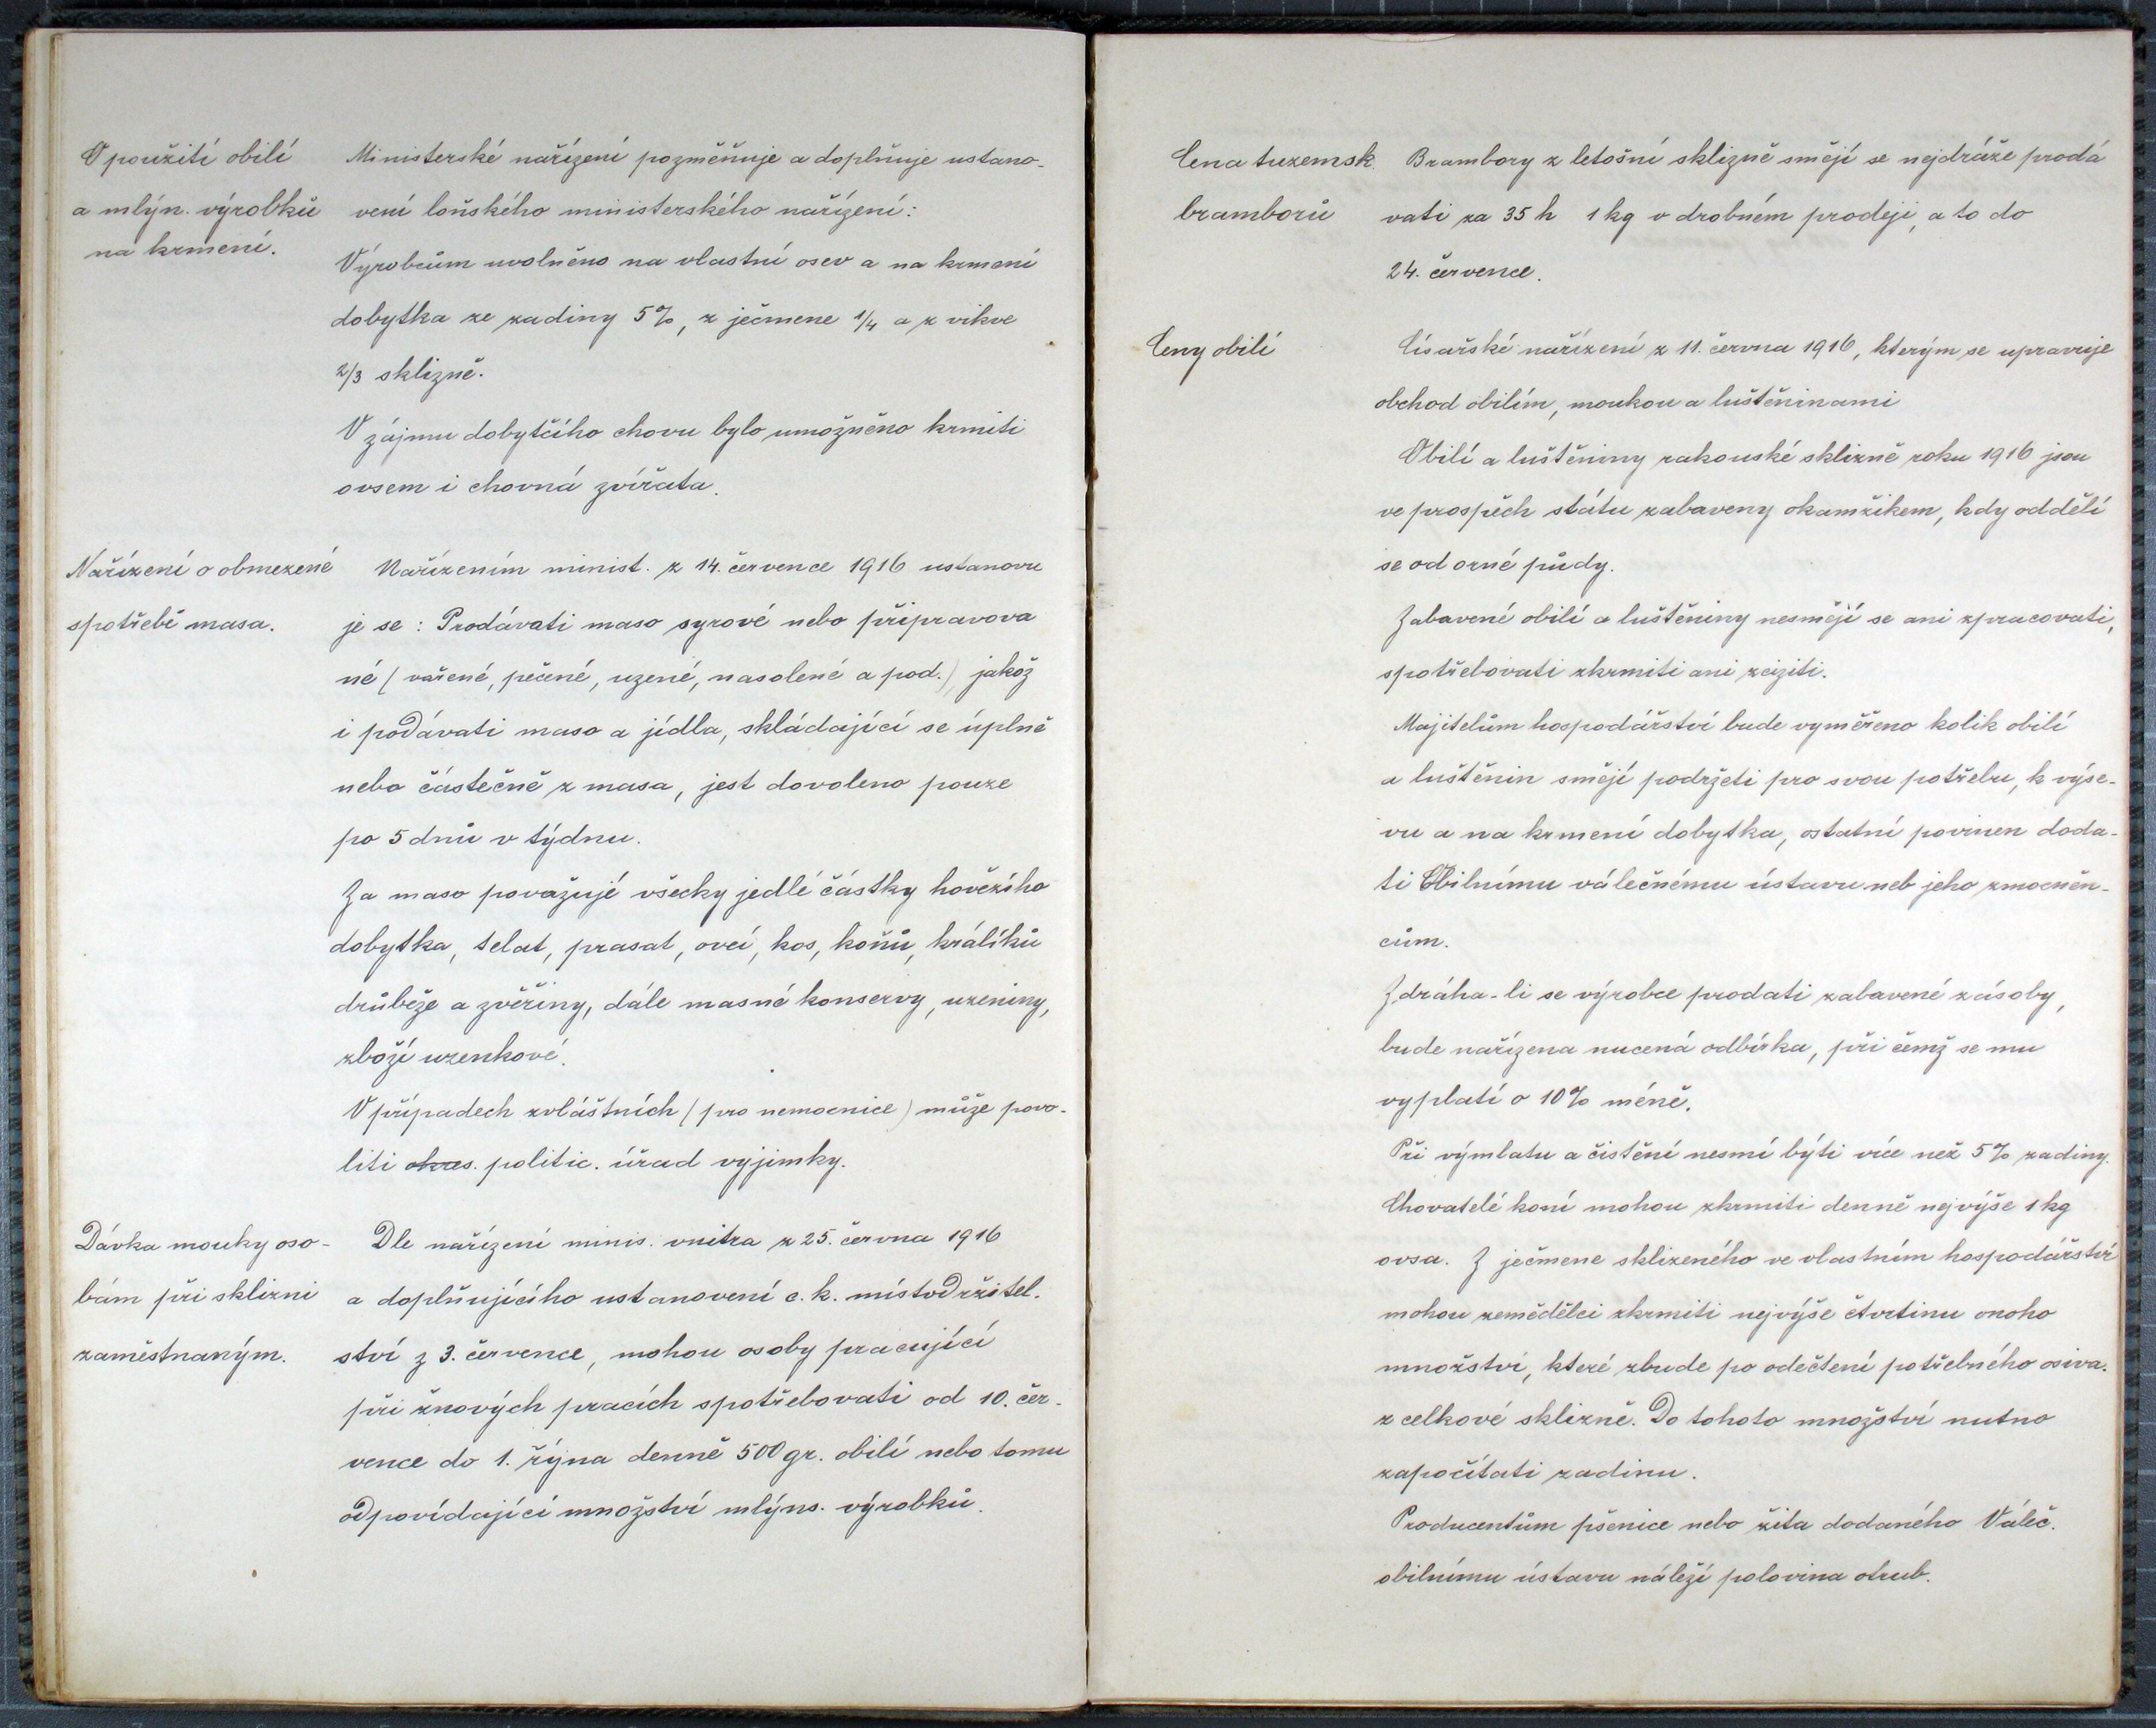 O použití obilí
a mlýn. výrobků
na krmení.
Ministerské nařízení pozměňuje a doplňuje ustano-
vení loňského ministerského nařízení:
Výrobcům uvolněno na vlastní osev a na krmení
dobytka ze zadiny 5%, z ječmene 1/4 a z vikve
2/3 sklizně.
V zájmu dobytčího chovu bylo umožněno krmiti
ovsem i chovná zvířata.
Nařízení o obmezené
spotřebě masa.
Nařízením minist. z 14. července 1916 ustanovu
je se: Prodávati maso syrové nebo připravova
né (vařené, pečené, uzené, nasolené a pod.), jakož
i podávati maso a jídla, skládající se úplně
nebo částečně z masa, jest dovoleno pouze
po 5 dnů v týdnu.
Za maso považují všecky jedlé částky hovězího
dobytka, telat, prasat, ovcí, koz, koňů, králíků
drůbeže a zvěřiny, dále masné konservy, uzeniny,
zboží uzenkové.
V případech zvláštních (pro nemocnice) může povo-
liti okres. politic. úřad vyjimky.
Dávka mouky oso-
bám při sklizni
zaměstnaným.
Dle nařízení minis. vnitra z 25. června 1916
a doplňujícího ustanovení c. k. místodržitel-
ství z 3. července, mohou osoby pracující
při žnových pracích spotřebovati od 10. čer-
vence do 1. října denně 500 gr. obilí nebo tomu
odpovídající množství mlýns. výrobků.
Cena tuzemsk.
bramborů
Brambory z letošní sklizně smějí se nejdráže prodá
vati za 35 h 1 kg v drobném prodeji, a to do
24. července.
Ceny obilí
Císařské nařízení z 11. června 1916, kterým se upravuje
obchod obilím, moukou a luštěninami
Obilí a luštěniny rakouské sklizně roku 1916 jsou
ve prospěch státu zabaveny okamžikem, kdy oddělí
se od orné půdy.
Zabavené obilí a luštěniny nesmějí se ani zpracovati,
spotřebovati zkrmiti ani zciziti.
Majitelům hospodářství bude vyměřeno kolik obilí
a luštěnin smějí podržeti pro svou potřebu, k výse-
vu a na krmení dobytka, ostatní povinen doda-
ti Obilnímu válečnému ústavu neb jeho zmocněn-
cům.
Zdráhá-li se výrobce prodati zabavené zásoby,
bude nařízena nucená odbírka, při čemž se mu
vyplatí o 10% méně.
Při výmlatu a čistění nesmí býti více než 5% zadiny.
Chovatelé koní mohou zkrmiti denně nejvýše 1 kg
ovsa. Z ječmene sklizeného ve vlastním hospodářství
mohou zemědělci zkrmiti nejvýše čtvrtinu onoho
množství, které zbude po odečtení potřebného osiva.
z celkové sklizně. Do tohoto množství nutno
započítati zadinu.
Producentům pšenice nebo žita dodaného Váleč.
obilnímu ústavu náleží polovina otrub.